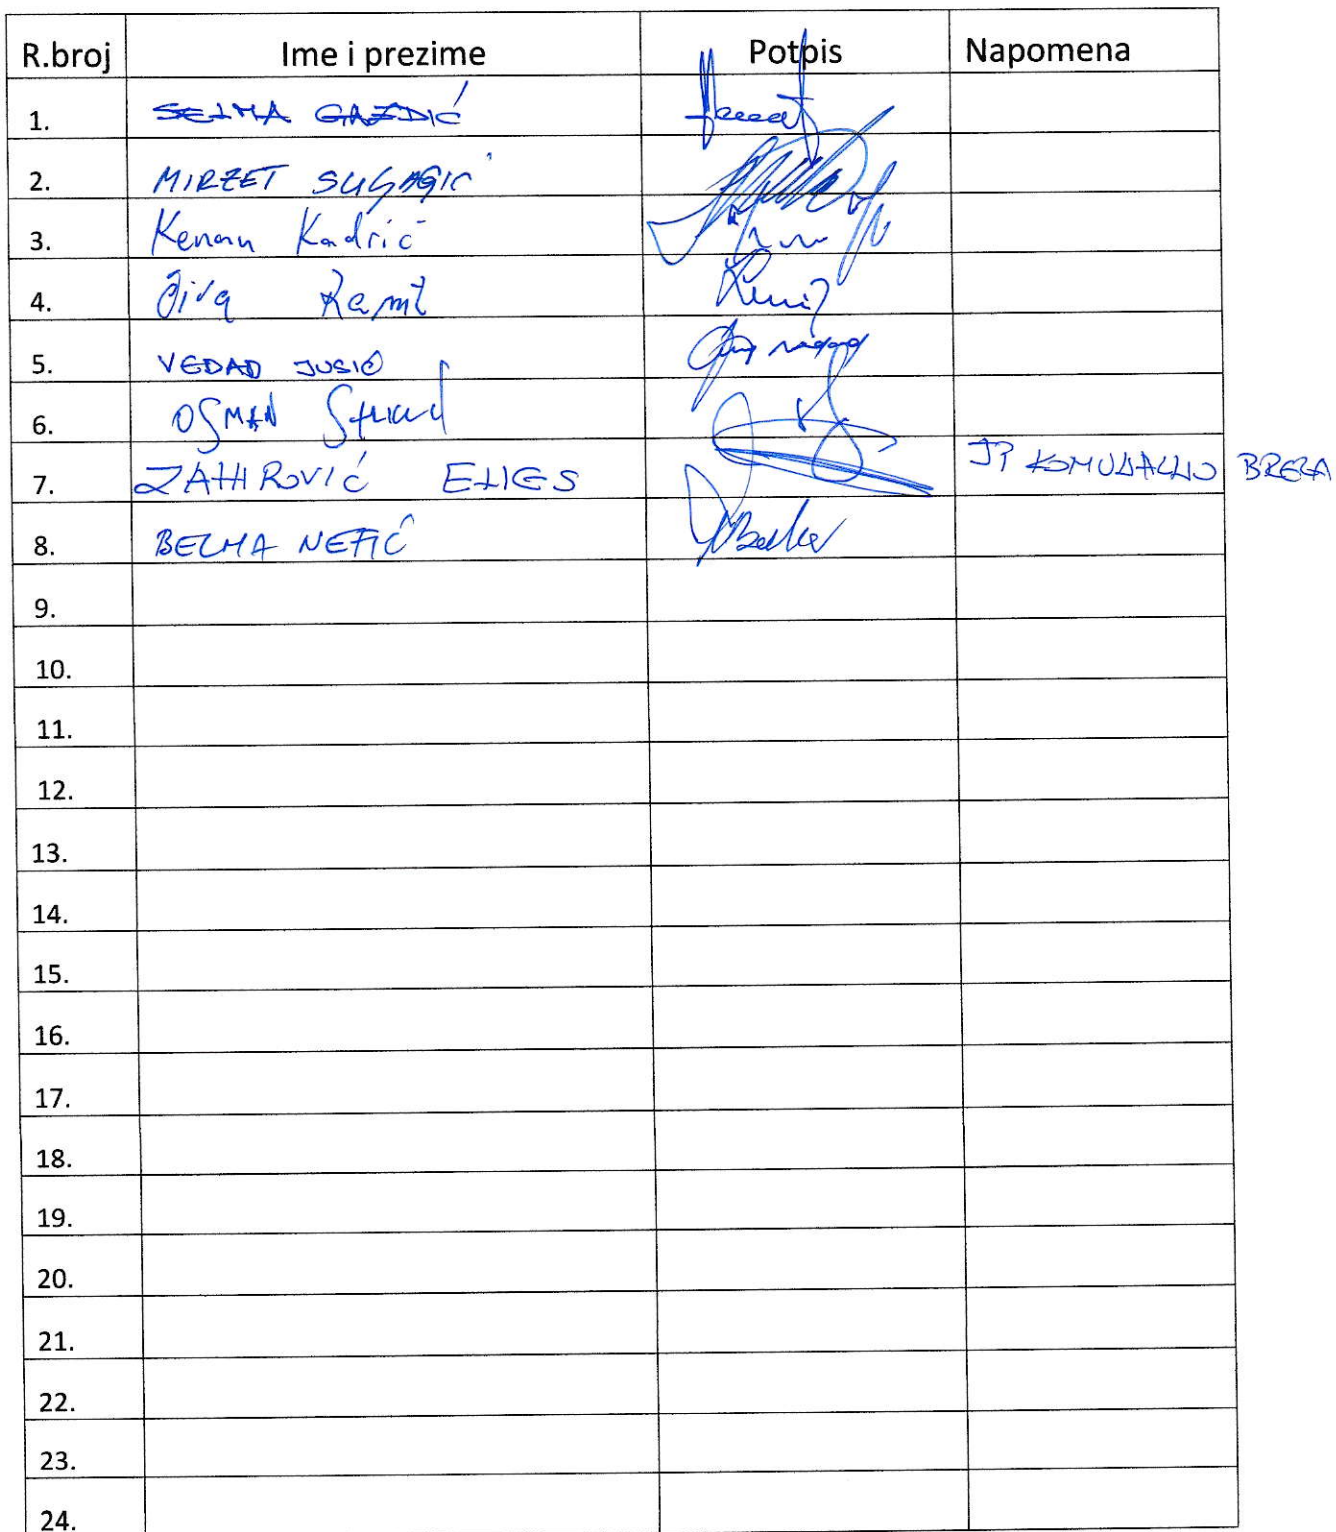 R.broj Ime i prezime Potpis Napomena
1. SELMA GAZDIĆ
2. MIRZET
3. Kenan Kadrić
4. Ramić
5. VEDAD JUSIĆ
6. OSMAN
7. ZAHIROVIĆ JP KOMUNALNO BREZA
8. BELMA NEFIĆ
9.
10.
11.
12.
13.
14.
15.
16.
17.
18.
19.
20.
21.
22.
23.
24.